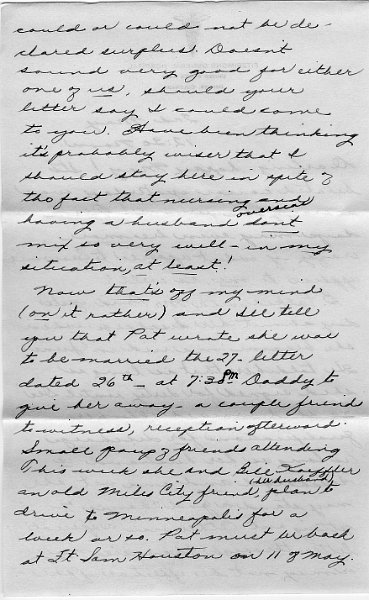 could or could not be de-
clared surplus. Doesn't
sound very good for either
one of us, should your
letter say I could come
to you. Have been thinking
it's probably wiser that I
should stay here in spite of
the fact that nursing and
having a husband overseas don't
mix so very well - in my
situation, at least!
Now that's off my mind
(on it rather) and I'll tell
you that Pat wrote she was
to be married the 27 - letter
dated 26th - at 7:30 PM Daddy to
give her away - a couple friends
to witness, reception afterward.
Small group of friends attending
This week she and Bill
an old Miles City friend, (her husband) plan to
drive to Minneapolis for a
week or so. Pat must be back
at Ft Sam Houston on 11 of May.